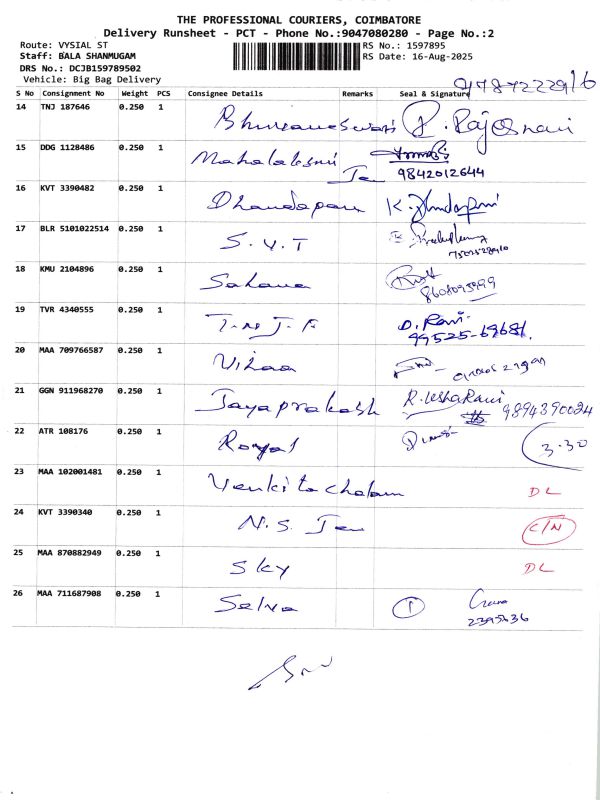 THE PROFESSIONAL COURIERS, COIMBATORE
Delivery Runsheet - PCT - Phone No.:9047080280 - Page No.:2
Route: VYSIAL ST
Staff: BALA SHANMUGAM
DRS No.: DCJB159789502
Vehicle: Big Bag Delivery
RS No.: 1597895
RS Date: 16-Aug-2025
S No Consignment No Weight PCS Consignee Details Remarks Seal & Signature
14 TNJ 187646 0.250 1 Bhuvaneswari
15 DDG 1128486 0.250 1 Mahalakshmi Tex 9842012644
16 KVT 3390482 0.250 1 Dhandapani
17 BLR 5101022514 0.250 1 S.V.T
18 KMU 2104896 0.250 1 Sahana
19 TVR 4340555 0.250 1 D. Ravi
20 MAA 709766587 0.250 1
21 GGN 911968270 0.250 1 Jayaprakash R. UshaRani 9894390024
22 ATR 108176 0.250 1 Royal 3.30
23 MAA 102001481 0.250 1 Venkitachalam DL
24 KVT 3390340 0.250 1 N.S. Tex C/N
25 MAA 870882949 0.250 1 Sky DL
26 MAA 711687908 0.250 1 Selva 1 2395636